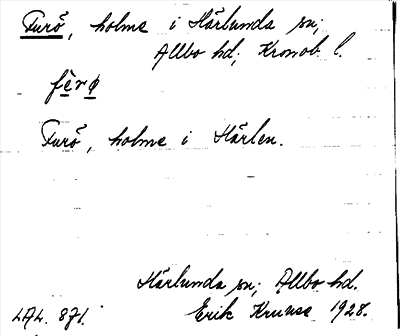 Furö, holme i Härlunda sn;
Allbo hd; Kronob. l.
fèrø
Furö, holme i Härlen.
Härlunda sn; Allbo hd.
LAL. 871. Erik Kruuse 1928.